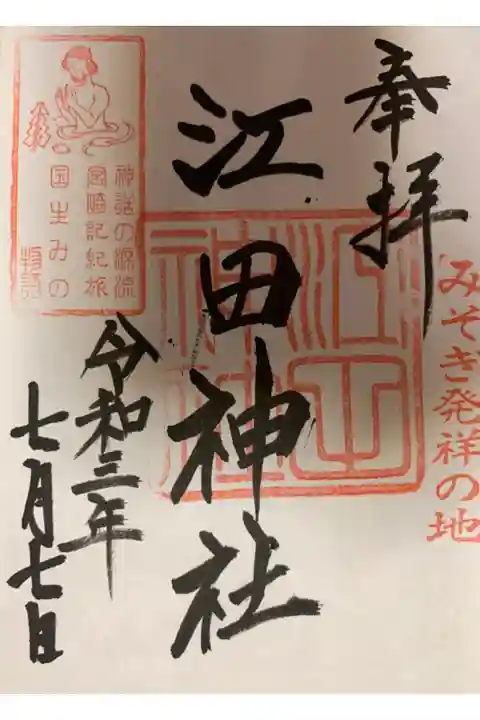 奉拝
みそぎ発祥の地
江田神社
江田神社
神話の源流
宮崎記紀旅
国生みの
物語
令和三年
七月七日